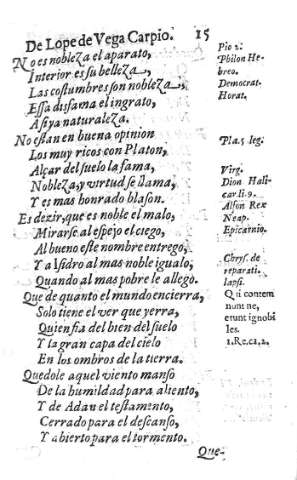 De Lope de Vega Carpio. 15
No es nobleza el aparato,
Interior es su belleza,
Las costumbres son nobleza,
Essa disfama el ingrato,
A su naturaleza.
No estan en buena opinion
Los muy ricos con Platon,
Alçar del suelo la fama,
Nobleza, y virtud se llama,
Y es mas honrado blason.
Es dezir, que es noble el malo,
Mirarse al espejo el ciego,
Al bueno este nombre entrego,
Y a Isidro al mas noble igualo,
Quando al mas pobre le allego.
Que de quanto el mundo encierra,
Solo tiene el ver que yerra,
Quien fia del bien del suelo
Y la gran capa del cielo
En los ombros de la tierra.
Quedole aquel viento manso
De la humildad para aliento,
Y de Adan el testamento,
Cerrado para el descanso,
Y abierto para el tormento.
Que-
Pio 2.
Philon He-
breo.
Democrat.
Horat.
Pla. 5 leg.
Virg.
Dion Hali-
car li. 9.
Alfon Rex
Neap.
Epicarnio.
Chrys. de
reparati.
lapsi.
Qui contem
nunt me,
erunt ignobi
les.
1. Re. ca, 2.